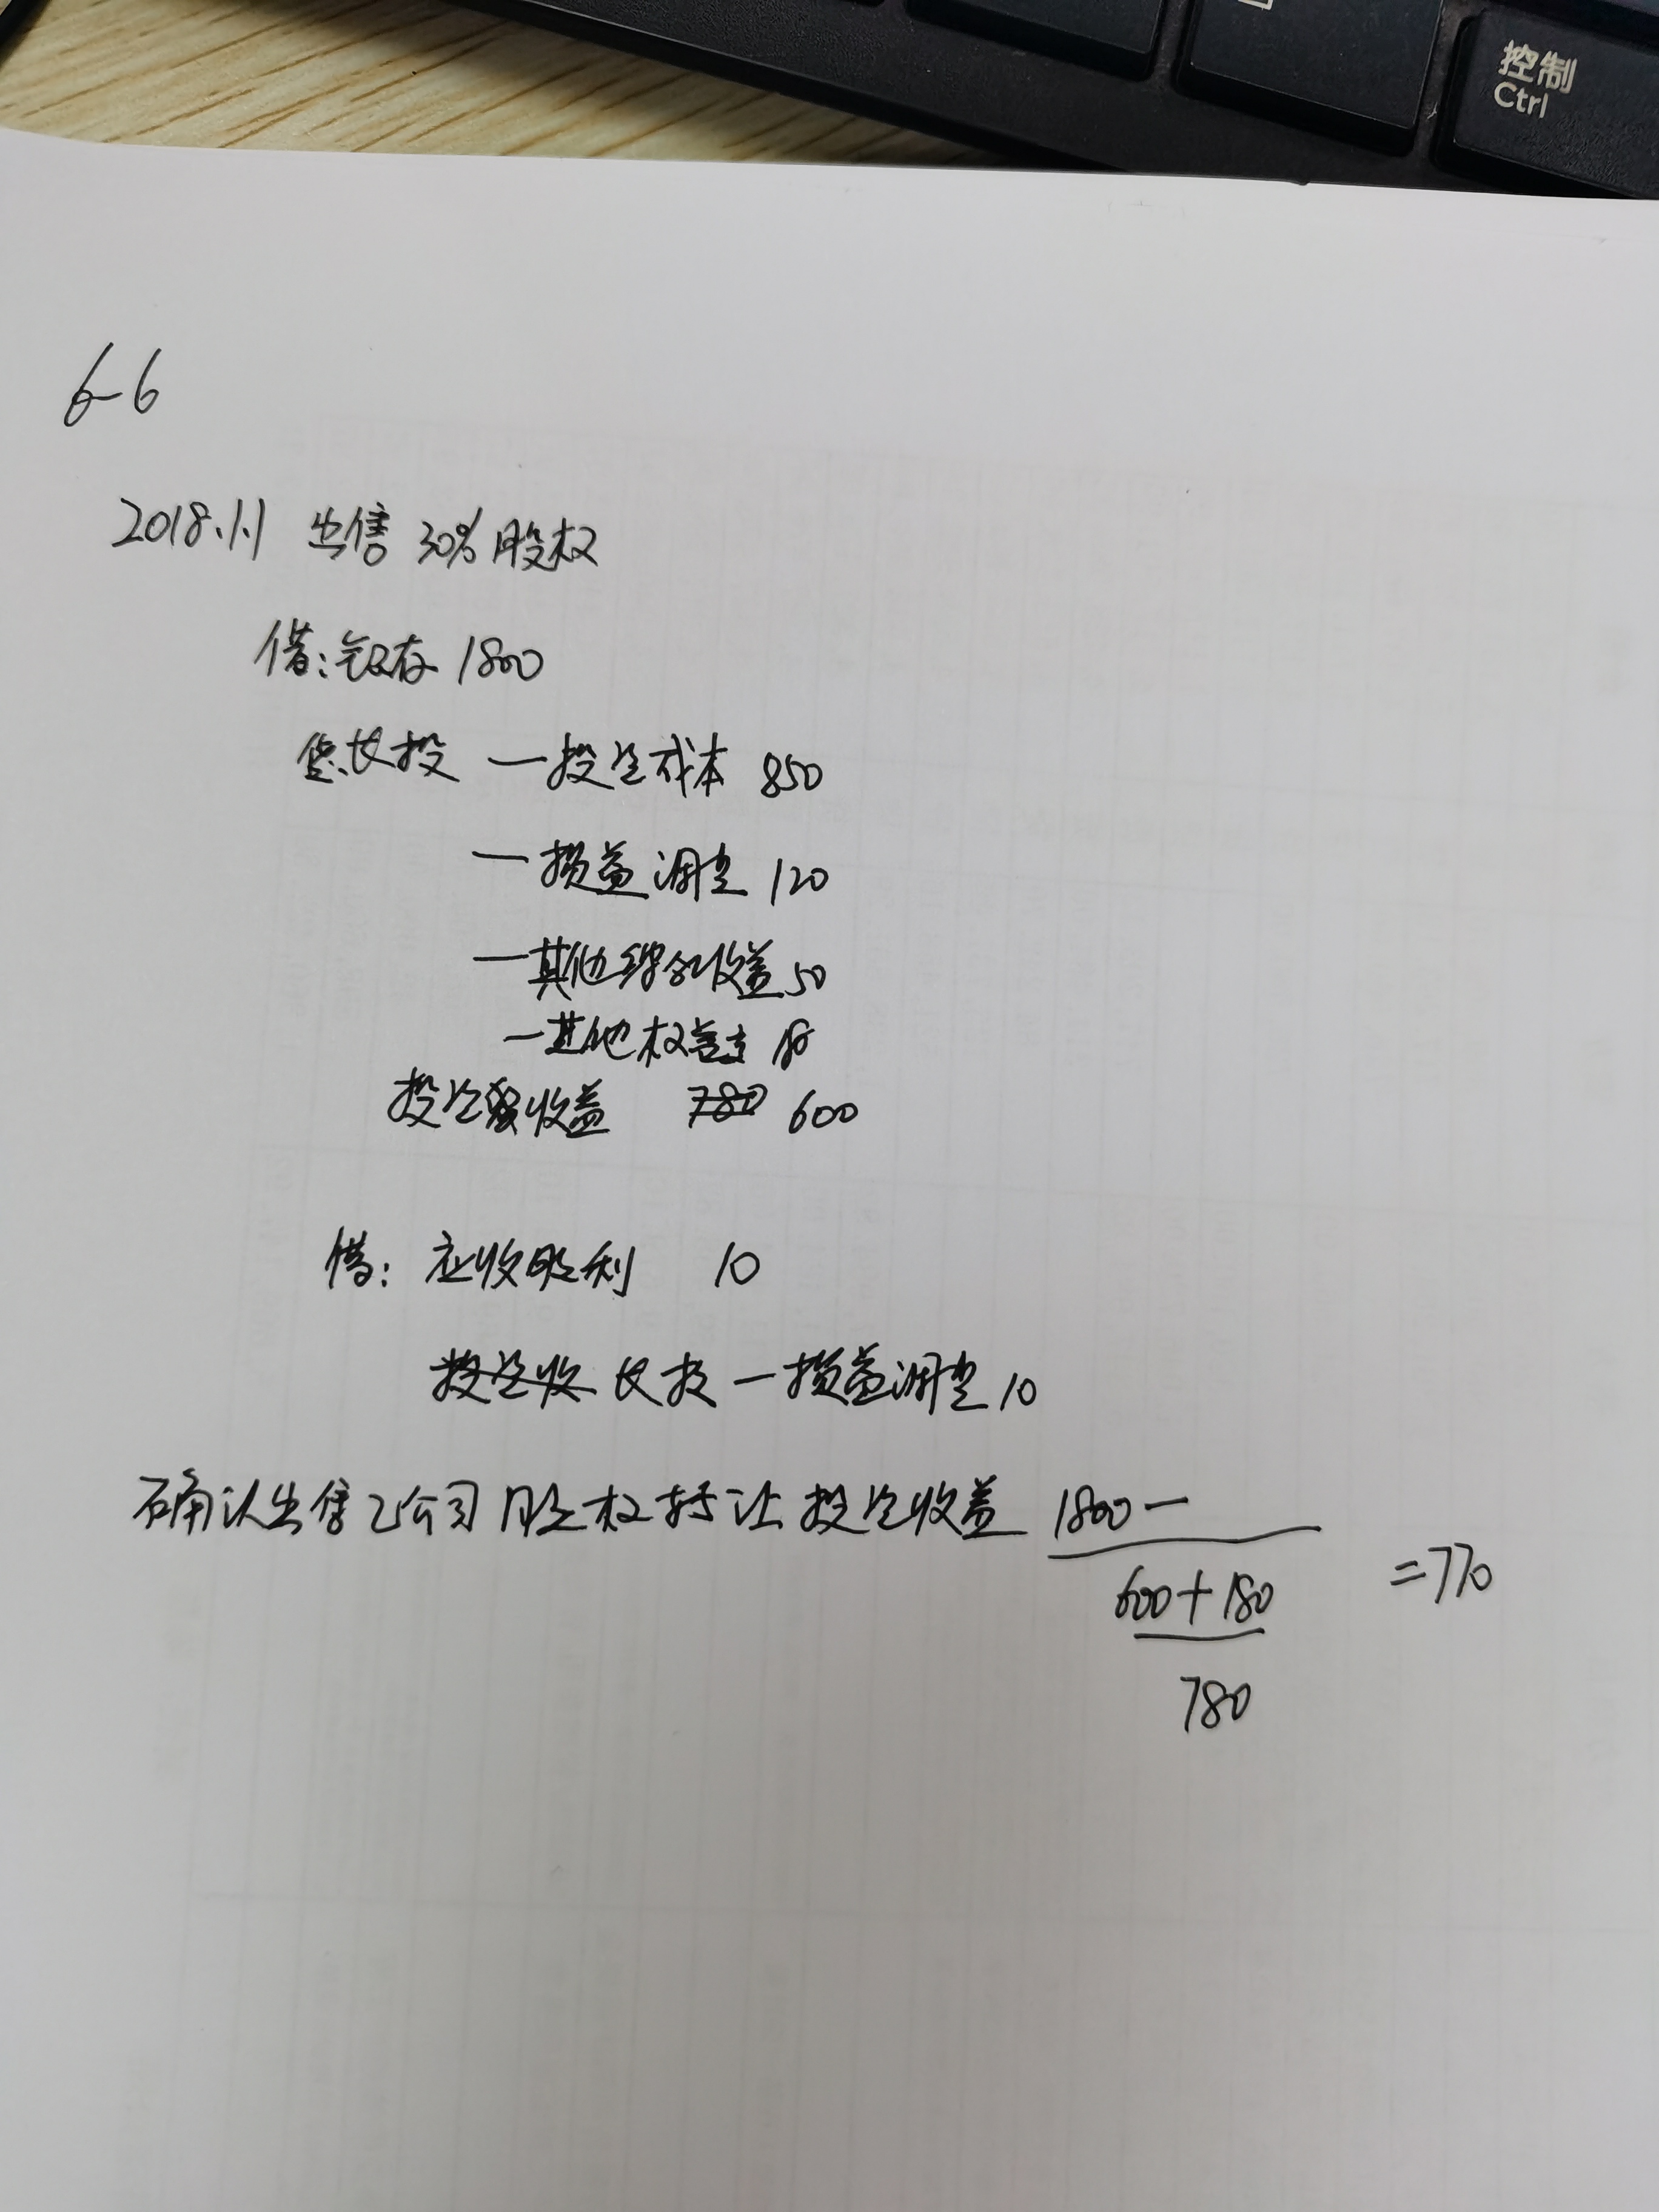 控制
Ctrl
6-6
2018.1.1 出售 30% 股权
借:银存 1800
贷:长投 — 投资成本 850
— 损益调整 120
— 其他综合收益 50
— 其他权益变
投资收益 780 600
借: 应收股利 10
投资收 长投 — 损益调整 10
确认出售乙公司股权转让投资收益 1800 —
600 + 180 = 770
780